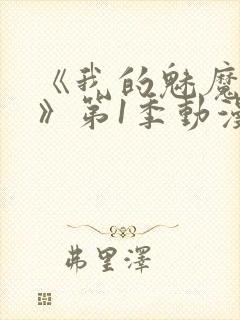 《我的魅魔
》第1季動漫
弗里澤